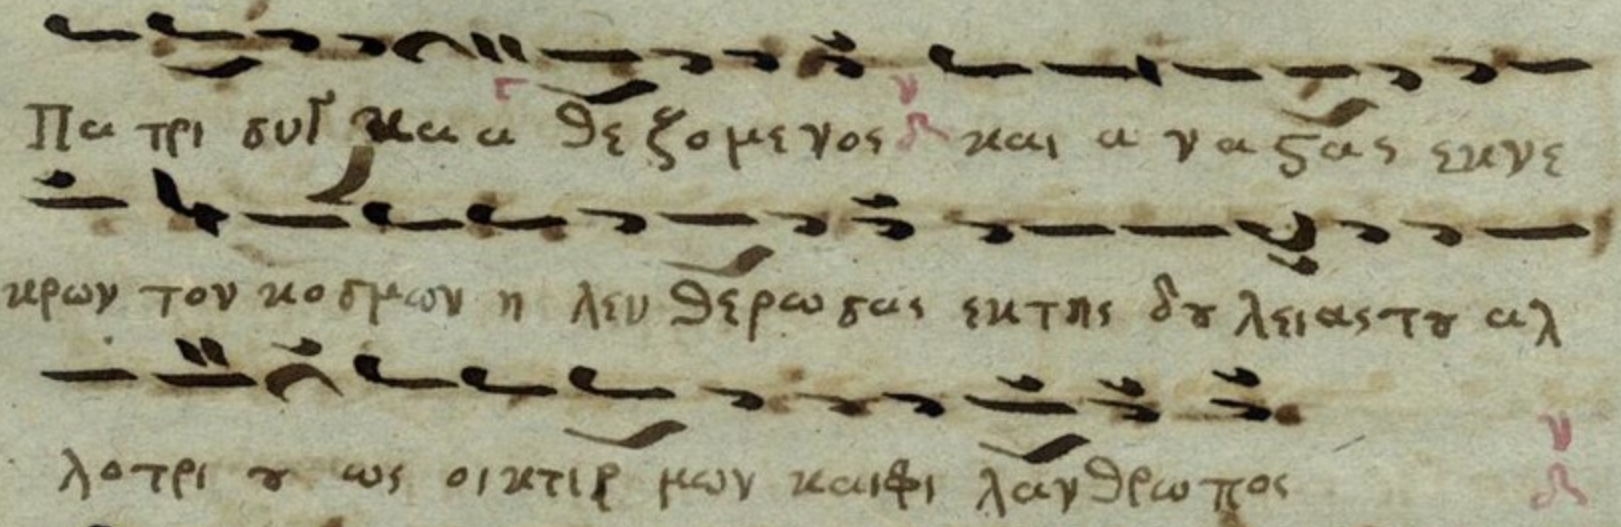 Πα τρι συγ κα α θε ζο με νος και α να ϛας εκ νε
κρων τον κο σμων η λευ θε ρω σας εκ της δȣ λει ας τȣ αλ
λο τρι ȣ ως οι κτιρ μων και φι λαν θρω πος